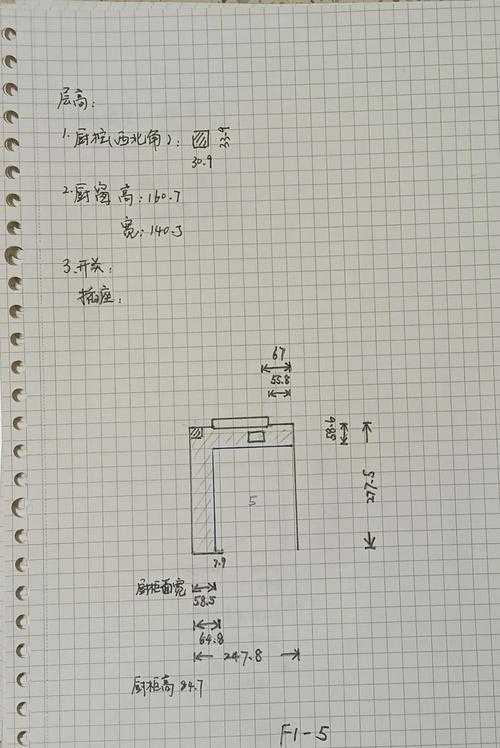 层高:
1.厨柱(西北角): 33.9
30.9
2.厨窗 高:160.7
宽:140.3
3.开关:
插座:
67
55.8
58.6
277.5
5
7.9
厨柜面宽
58.5
64.8
247.8
厨柜高 84.7
F1-5